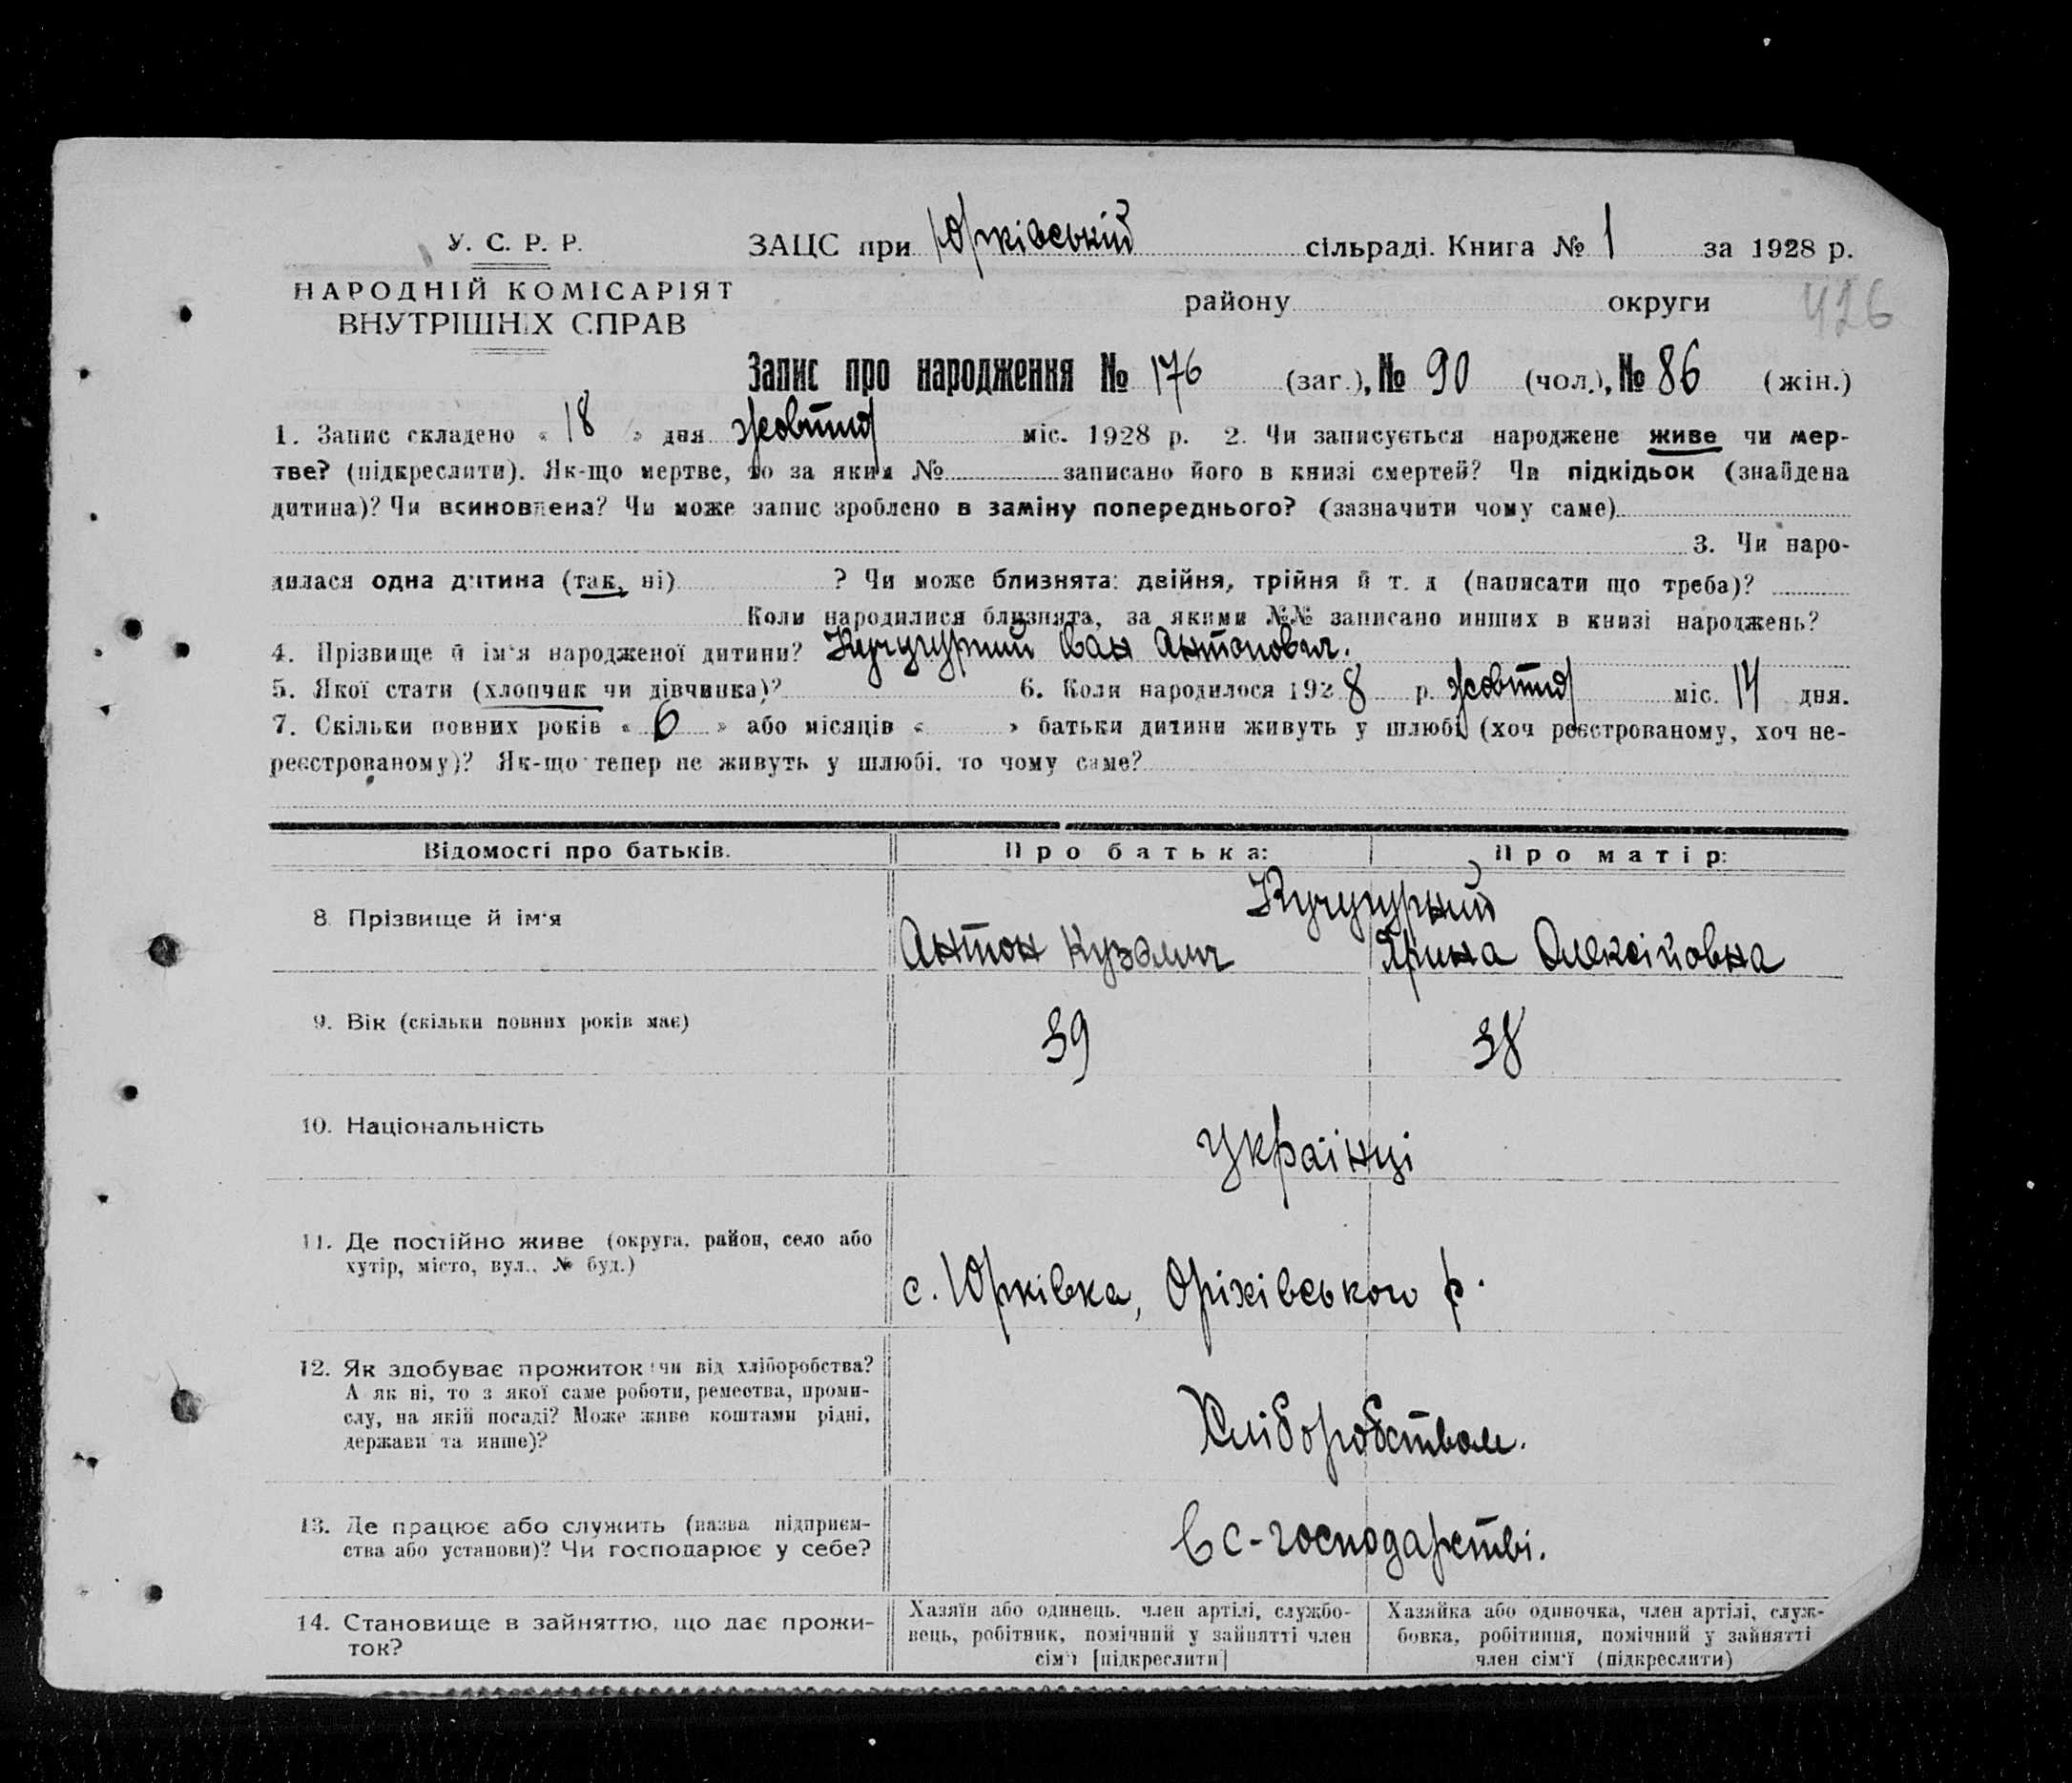 У. С. Р. Р.
НАРОДНІЙ КОМІСАРІЯТ
ВНУТРІШНІХ СПРАВ
ЗАЦС при Юрківській сільраді. Книга № 1 за 1928 р.
району округи
426
Запис про народження № 176 (заг.), № 90 (чол.), № 86 (жін.)
1. Запис складено « 18 » дня жовтня міс. 1928 р. 2. Чи записується народжене живе чи мер-
тве? (підкреслити). Як-що мертве, то за яким № записано його в книзі смертей? Чи підкідьок (знайдена
дитина)? Чи всиновлена? Чи може запис зроблено в заміну попереднього? (зазначити чому саме)
3. Чи наро-
дилася одна дитина (так, ні) ? Чи може близнята: двійня, трійня й т. д (написати що треба)?
Коли народилися близнята, за якими №№ записано инших в книзі народжень?
4. Прізвище й ім'я народженої дитини? Кучугурний Іван Антонович.
5. Якої стати (хлопчик чи дівчинка)? 6. Коли народилося 1928 р. жовтня міс. 14 дня.
7. Скільки повних років « 6 » або місяців « » батьки дитини живуть у шлюбі (хоч реєстрованому, хоч не-
реєстрованому)? Як-що тепер не живуть у шлюбі, то чому саме?
Відомості про батьків. Про батька: Про матір:
8. Прізвище й ім'я Кучугурний
Антон Кузьмич Ярина Олексійовна
9. Вік (скільки повних років має) 39 38
10. Національність Українці
11. Де постійно живе (округа, район, село або
хутір, місто, вул., № буд.)
с. Юрківка, Оріхівського р.
12. Як здобуває прожиток (чи від хліборобства?
А як ні, то з якої саме роботи, ремества, проми-
слу, на якій посаді? Може живе коштами рідні,
держави та инше)?
Хліборобством.
13. Де працює або служить (назва підприєм-
ства або установи)? Чи господарює у себе?
В с-господарстві.
14. Становище в зайняттю, що дає прожи-
ток?
Хазяїн або одинець, член артілі, службо-
вець, робітник, помічний у зайнятті член
сім'ї [підкреслити]
Хазяйка або одиночка, член артілі, служ-
бовка, робітниця, помічний у зайнятті
член сім'ї (підкреслити)